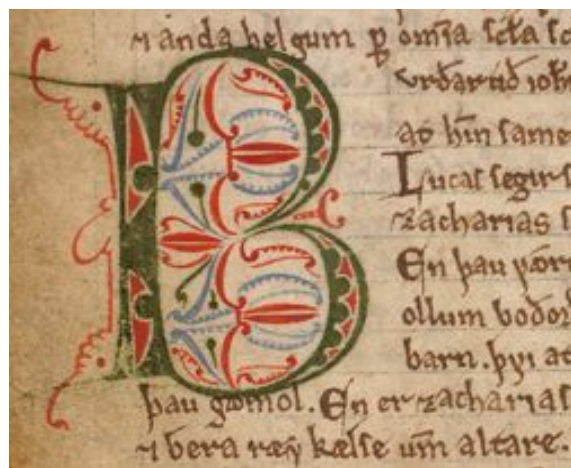 ⁊ anda helgum ꝑ om̅ia sc̅la sc
B
urðartið ioh̅
að hin same
Lucas segir s
zacharias s
En þau vór
ollum boðor
barn. þvi at
þau gömol. En er zacharias
⁊ bera kælse um̅ altare.